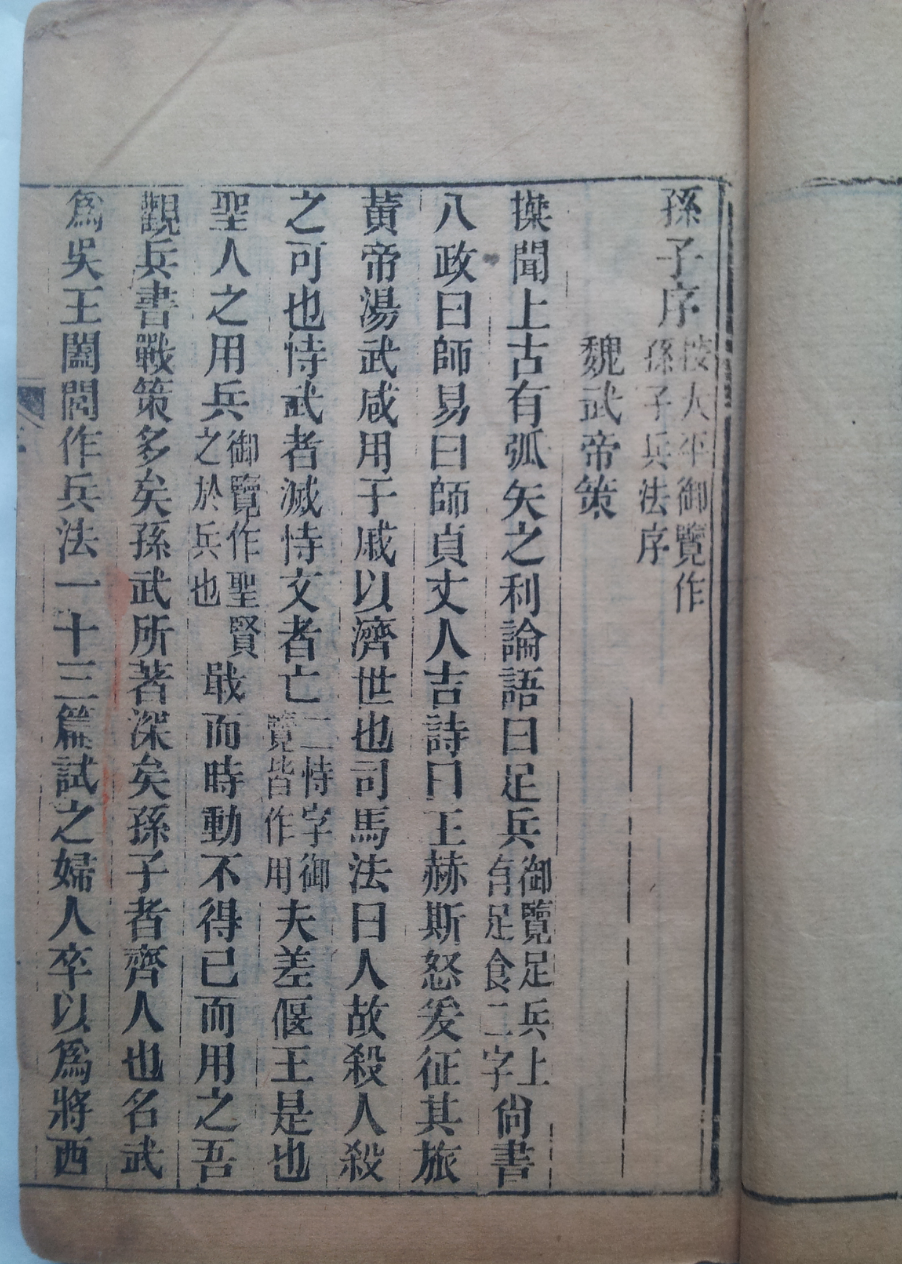 孫子序 按大平御覽作孫子兵法序
魏武帝策
操聞上古有弧矢之利論語曰足兵御覽足兵上有足食二字尚書
八政曰師易曰師貞丈人吉詩曰王赫斯怒爰征其旅
黃帝湯武咸用干戚以濟世也司馬法曰人故殺人殺
之可也恃武者滅恃文者亡二恃字御覽皆作用夫差偃王是也
聖人之用兵御覽作聖賢之於兵也戢而時動不得已而用之吾
觀兵書戰策多矣孫武所著深矣孫子者齊人也名武
爲吳王闔閭作兵法一十三篇試之婦人卒以爲將西